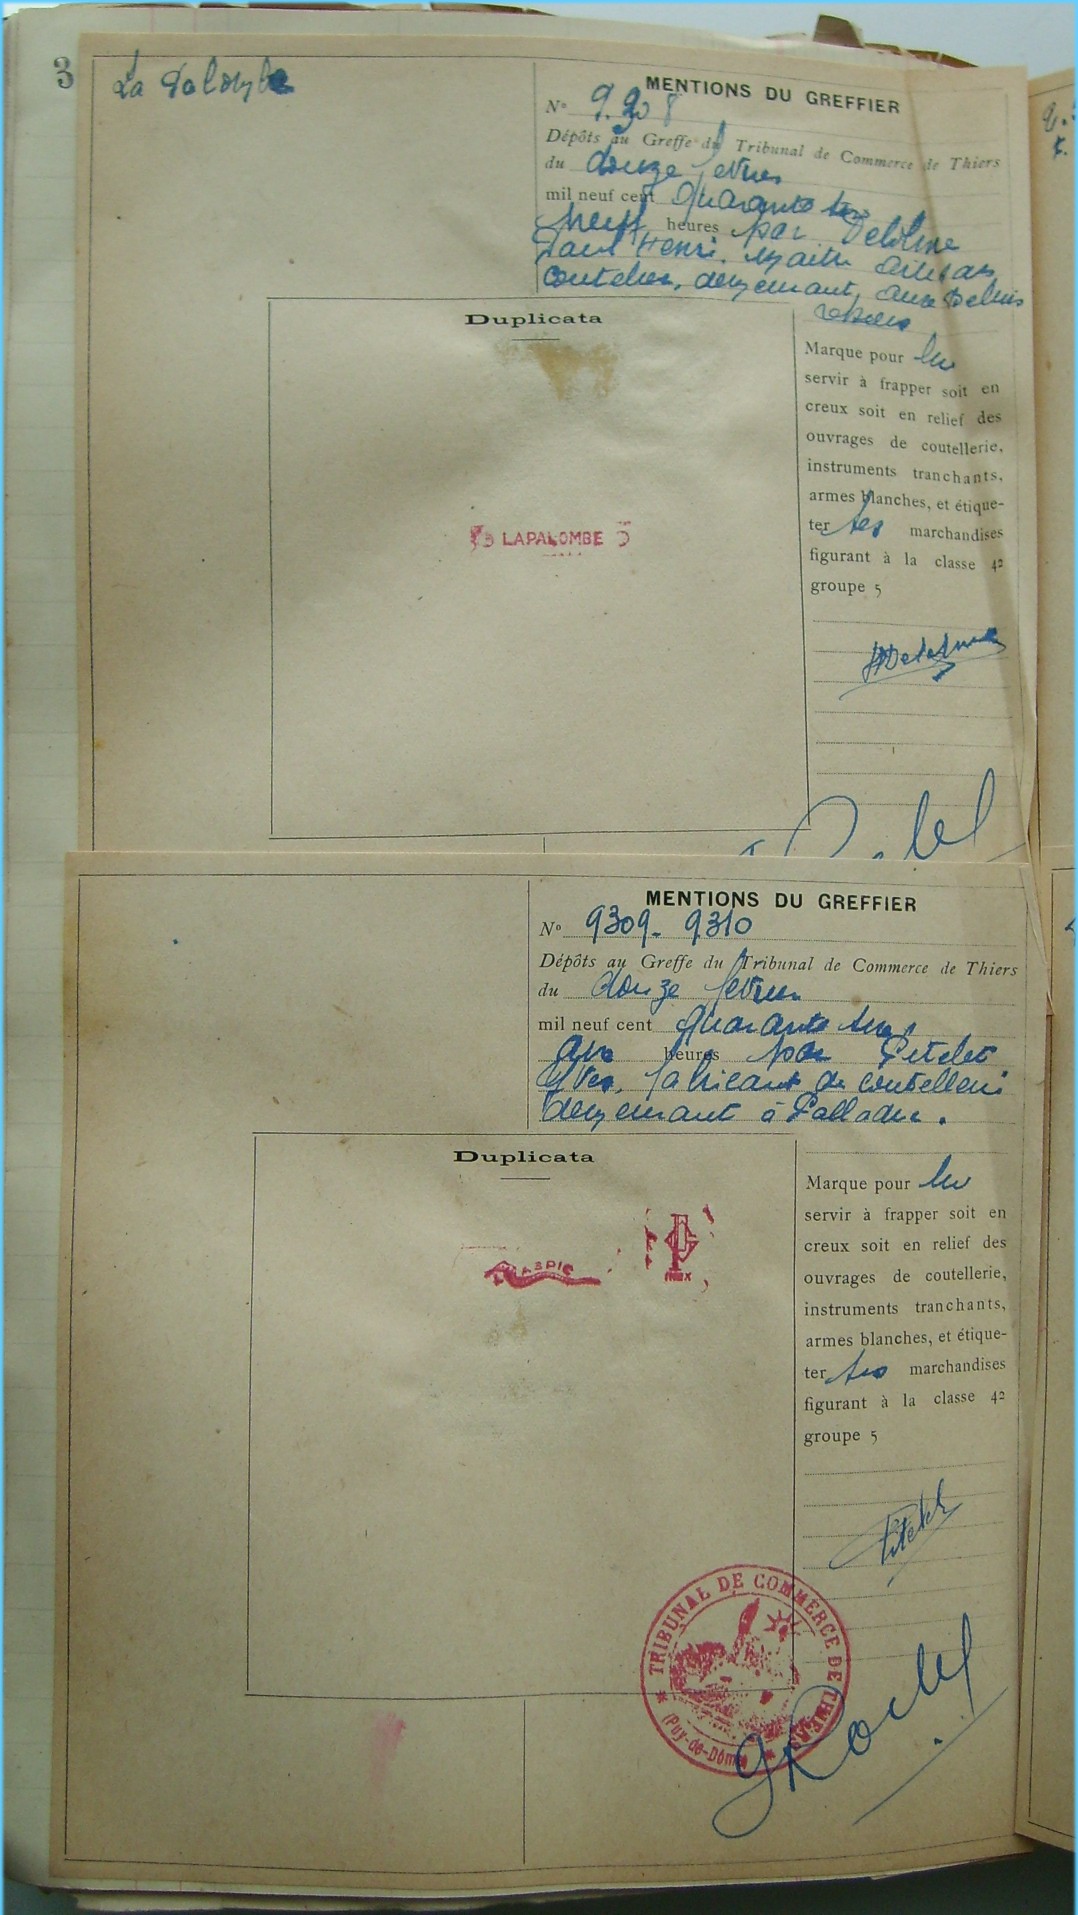 3
La Palombe
MENTIONS DU GREFFIER
N° 9.308
Dépôts au Greffe du Tribunal de Commerce de Thiers
du douze
mil neuf cent quarante
neuf heures par Delolme
Paul Henri
coutelier, demeurant, aux
Duplicata
Marque pour lui
servir à frapper soit en
creux soit en relief des
ouvrages de coutellerie,
instruments tranchants,
armes blanches, et étique-
ter ses marchandises
figurant à la classe 42
groupe 5
LAPALOMBE
MENTIONS DU GREFFIER
N° 9309 - 9310
Dépôts au Greffe du Tribunal de Commerce de Thiers
du douze
mil neuf cent quarante
heures par Pitelet
Yves, fabricant de coutellerie
demeurant à Palladuc.
Duplicata
Marque pour lui
servir à frapper soit en
creux soit en relief des
ouvrages de coutellerie,
instruments tranchants,
armes blanches, et étique-
ter ses marchandises
figurant à la classe 42
groupe 5
ASPIC
INOX
Pitelet
TRIBUNAL DE COMMERCE DE THIERS
(Puy-de-Dôme)